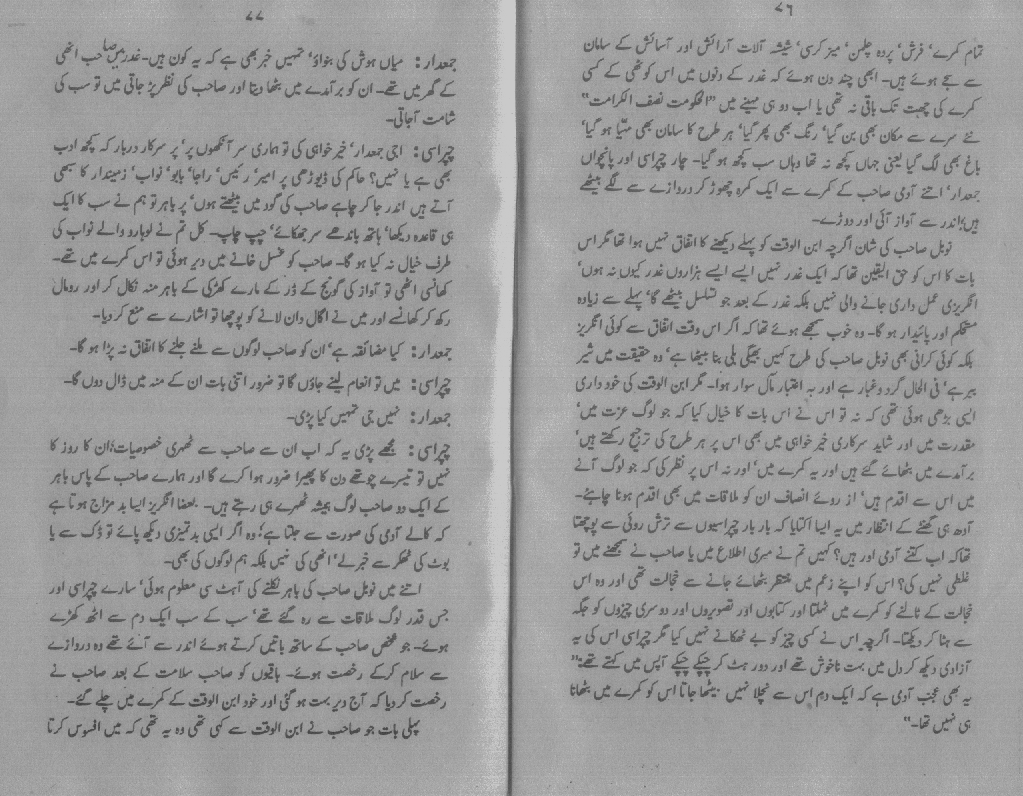 ۷۶
تمام کمرے، فرش، پردہ چلمن، میز کرسی، شیشہ آلات آرائش اور آسائش کے سامان
سے سجے ہوئے ہیں۔ ابھی چند دن ہوئے کہ غدر کے دنوں میں اس کوٹھی کے کسی
کمرے کی چھت تک باقی نہ تھی یا اب دو ہی مہینے میں "الحکومت نصف الکرامت"
نئے سرے سے مکان بھی بن گیا، رنگ بھی پھر گیا، ہر طرح کا سامان بھی مہیّا ہو گیا،
باغ بھی لگ گیا یعنی جہاں کچھ نہ تھا وہاں سب کچھ ہو گیا۔ چار چپراسی اور پانچواں
جمعدار، اتنے آدمی صاحب کے کمرے سے ایک کمرہ چھوڑ کر دروازے سے لگے بیٹھے
ہیں، اندر سے آواز آئی اور دوڑے۔
نوبل صاحب کی شان اگرچہ ابن الوقت کو پہلے دیکھنے کا اتفاق نہیں ہوا تھا مگر اس
بات کا اس کو حق الیقین تھا کہ ایک غدر نہیں ایسے ایسے ہزاروں غدر کیوں نہ ہوں،
انگریزی عمل داری جانے والی نہیں بلکہ غدر کے بعد جو تسلسل بیٹھے گا، پہلے سے زیادہ
مستحکم اور پائیدار ہو گا۔ وہ خوب سمجھے ہوئے تھا کہ اگر اس وقت اتفاق سے کوئی انگریز
بلکہ کوئی کرانی بھی نوبل صاحب کی طرح کہیں بھیگی بلی بنا بیٹھا ہے، وہ حقیقت میں شیر
ببر ہے، فی الحال گرد و غبار ہے اور بہ اعتبار مآل سوار ہوا۔ مگر ابن الوقت کی خود داری
ایسی بڑھی ہوئی تھی کہ نہ تو اس نے اس بات کا خیال کیا کہ جو لوگ عزت میں،
مقدرت میں اور شاید سرکاری خیر خواہی میں بھی اس پر ہر طرح کی ترجیح رکھتے ہیں،
برآمدے میں بٹھائے گئے ہیں اور یہ کمرے میں، اور نہ اس پر نظر کی کہ جو لوگ آنے
میں اس سے اقدم ہیں، از روئے انصاف ان کو ملاقات میں بھی اقدم ہونا چاہئے۔
آدھ ہی گھنٹے کے انتظار میں یہ ایسا اکتایا کہ بار بار چپراسیوں سے ترش روئی سے پوچھتا
تھا کہ اب کتنے آدمی اور ہیں؟ کہیں تم نے میری اطلاع میں یا صاحب نے سمجھنے میں تو
غلطی نہیں کی؟ اس کو اپنے زعم میں منتظر بٹھائے جانے سے خجالت تھی اور وہ اس
خجالت کے ٹالنے کو کمرے میں ٹہلتا اور کتابوں اور تصویروں اور دوسری چیزوں کو جگہ
سے ہٹا کر دیکھتا۔ اگرچہ اس نے کسی چیز کو بے ٹھکانے نہیں کیا مگر چپراسی اس کی یہ
آزادی دیکھ کر دل میں بہت ناخوش تھے اور دور ہٹ کر چپکے چپکے آپس میں کہتے تھے: "
یہ بھی عجب آدمی ہے کہ ایک دم اس سے نچلا نہیں بیٹھا جاتا اس کو کمرے میں بٹھانا
ہی نہیں تھا۔"
۷۷
جمعدار: میاں ہوش کی بنواؤ، تمہیں خبر بھی ہے کہ یہ کون ہیں۔ غدر میں صاحب انھی
کے گھر میں تھے۔ ان کو برآمدے میں بٹھا دیتا اور صاحب کی نظر پڑ جاتی میں تو سب کی
شامت آجاتی۔
چپراسی: اجی جمعدار، خیر خواہی کی تو ہماری سر آنکھوں پر، پر سرکار دربار کہ کچھ ادب
بھی ہے یا نہیں؟ حاکم کی ڈیوڑھی پر امیر، رئیس، راجا، بابو، نواب، زمیندار کا سبھی
آتے ہیں اندر جا کر چاہے صاحب کی گود میں بیٹھتے ہوں، پر باہر تو ہم نے سب کا ایک
ہی قاعدہ دیکھا، ہاتھ باندھے سر جھکائے، چپ چاپ۔ کل تم نے لوہارو والے نواب کی
طرف خیال نہ کیا ہو گا۔ صاحب کو غسل خانے میں دیر ہوئی تو اس کمرے میں تھے۔
کھانسی اٹھی تو آواز کی گونج کے ڈر کے مارے کھڑکی کے باہر منہ نکال کر اور رومال
رکھ کر کھانسے اور میں نے اگال دان لانے کو پوچھا تو اشارے سے منع کر دیا۔
جمعدار: کیا مضائقہ ہے، ان کو صاحب لوگوں سے ملنے جلنے کا اتفاق نہ پڑا ہو گا۔
چپراسی: میں تو انعام لینے جاؤں گا تو ضرور اتنی بات ان کے منہ میں ڈال دوں گا۔
جمعدار: نہیں جی تمہیں کیا پڑی۔
چپراسی: مجھے پڑی یہ کہ اب ان سے صاحب سے ٹھہری خصوصیات، ان کا روز کا
نہیں تو تیسرے چوتھے دن کا پھیرا ضرور ہوا کرے گا اور ہمارے صاحب کے پاس باہر
کے ایک دو صاحب لوگ ہمیشہ ٹھہرے ہی رہتے ہیں۔ بعضا انگریز ایسا بد مزاج ہوتا ہے
کہ کالے آدمی کی صورت سے جلتا ہے، وہ اگر ایسی بد تمیزی دیکھ پائے تو ڈک سے یا
بوٹ کی ٹھکر سے خبر لے، انھی کی نہیں بلکہ ہم لوگوں کی بھی۔
اتنے میں نوبل صاحب کی باہر نکلنے کی آہٹ سی معلوم ہوئی، سارے چپراسی اور
جس قدر لوگ ملاقات سے رہ گئے تھے، سب کے سب ایک دم سے اٹھ کھڑے
ہوئے۔ جو شخص صاحب کے ساتھ باتیں کرتے ہوئے اندر سے آئے تھے وہ دروازے
سے سلام کرکے رخصت ہوئے۔ باقیوں کو صاحب سلامت کے بعد صاحب نے
رخصت کر دیا کہ آج دیر بہت ہو گئی اور خود ابن الوقت کے کمرے میں چلے گئے۔
پہلی بات جو صاحب نے ابن الوقت سے کہی تھی وہ یہ تھی کہ میں افسوس کرتا